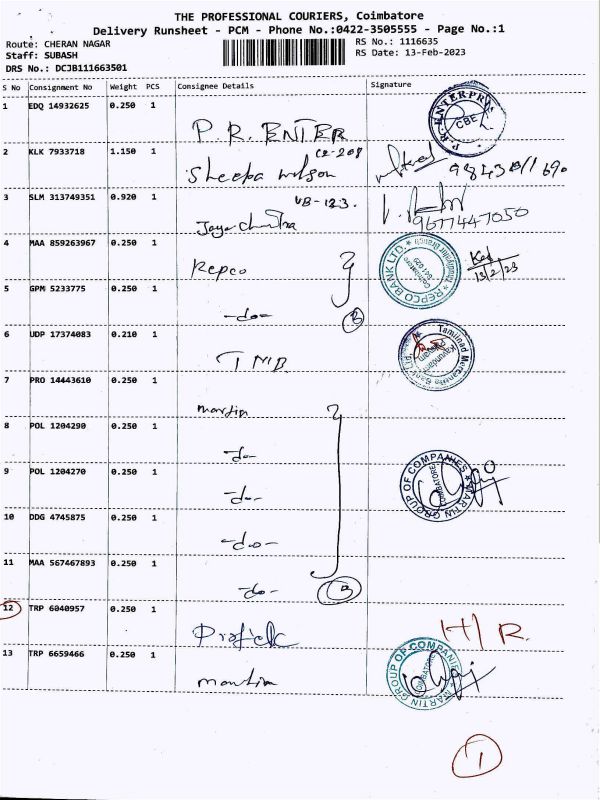 THE PROFESSIONAL COURIERS, Coimbatore
Delivery Runsheet - PCM - Phone No.:0422-3505555 - Page No.:1
Route: CHERAN NAGAR
Staff: SUBASH
DRS No.: DCJB111663501
RS No.: 1116635
RS Date: 13-Feb-2023
S No Consignment No Weight PCS Consignee Details Signature
1 EDQ 14932625 0.250 1
P.R. ENTER
P.R. ENTERPR CBE
2 KLK 7933718 1.150 1
Sheeba wilson
3 SLM 313749351 0.920 1
VB-123.
9677447050
4 MAA 859263967 0.250 1
Repco
REPCO BANK LTD. Coimbatore 641 029
13/2/23
5 GPM 5233775 0.250 1
-do-
6 UDP 17374083 0.210 1
TMB
Tamilnad Mercantile Bank Ltd.
7 PRO 14443610 0.250 1
martin
8 POL 1204290 0.250 1
-do-
9 POL 1204270 0.250 1
-do-
MARTIN GROUP OF COMPANIES COIMBATORE
10 DDG 4745875 0.250 1
-do-
11 MAA 567467893 0.250 1
-do-
12 TRP 6040957 0.250 1
H/R.
13 TRP 6659466 0.250 1
martin
MARTIN GROUP OF COMPANIES COIMBATORE
1